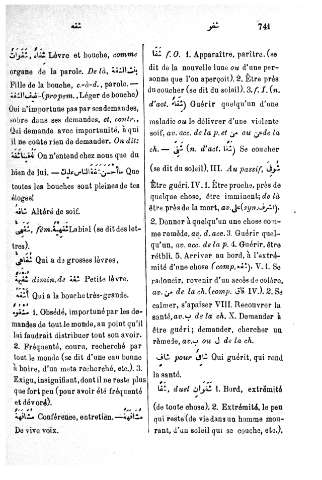 شفه شفو 741
شَفَةٌ, شَفَوَاتٌ Lèvre et bouche, comme
organe de la parole. De là, بِنْتُ الشَّفَة
Fille de la bouche, c-à-d., parole.
خفيف الشَّفَة (propem., Léger de bouche)
Qui n'importune pas par ses demandes,
sobre dans ses demandes, et, contr.,
Qui demande avec importunité, à qui
il ne coûte rien de demander. On dit:
On n'entend chez nous que du
bien de lui. Que
toutes les bouches sont pleines de tes
éloges!
شَافِهٌ Altéré de soif.
شَفَهِيٌّ, fém. شَفَهِيَّةٌ Labial (se dit des let-
tres).
Qui a de grosses lèvres.
شُفَيْهَةٌ dimin. de شَفَةٌ Petite lèvre.
Qui a la bouche très-grande.
مَشْفُوهٌ 1. Obsédé, importuné par les de-
mandes de tout le monde, au point qu'il
lui faudrait distribuer tout son avoir.
2. Fréquenté, couru, recherché par
tout le monde (se dit d'une eau bonne
à boire, d'un mets recherché, etc.). 3.
Exigu, insignifiant, dont il ne reste plus
que fort peu (pour avoir été fréquenté
et dévoré).
مُشَافَهَةٌ Conférence, entretien. — مُشَافَهَةً
De vive voix.
شَفَا f. O. 1. Apparaître, paraître. (se
dit de la nouvelle lune ou d'une per-
sonne que l'on aperçoit). 2. Être près
du coucher (se dit du soleil). 3. f. I. (n.
d'act. شِفَاءٌ) Guérir quelqu'un d'une
maladie ou le délivrer d'une violente
soif, av. acc. de la p. et من ou عن de la
ch. — شَفِيَ, (n. d'act. شَفًى) Se coucher
(se dit du soleil). III. Au passif, شُوفِيَ
Être guéri. IV. 1. Être proche, près de
quelque chose, être imminent ou là
être près de la mort, av. على (syn. اشرف).
2. Donner à quelqu'un une chose com-
me remède, ac. d. acc. 3. Guérir quel-
qu'un, ac. acc. de la p. 4. Guérir, être
rétabli. 5. Arriver au bord, à l'extré-
mité d'une chose (comp. شَفَا). V. 1. Se
radoucir, revenir d'un accès de colère,
av. من de la ch. (comp. IV). 2. Se
calmer, s'apaiser VIII. Recouvrer la
santé, av. ب de la ch. X. Demander à
être guéri; demander, chercher un
remède, av. ب ou ل de la ch.
شَافٍ pour شَافِي Qui guérit, qui rend
la santé.
شَفًا, duel شَفَوَانِ 1. Bord, extrémité
(de toute chose). 2. Extrémité, le peu
qui reste (de vie dans un homme mou-
rant, d'un soleil qui se couche, etc.).